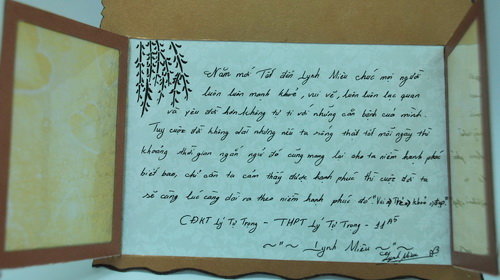 Năm mới Tết đến Lynh Miêu chúc mọi người
luôn luôn mạnh khoẻ, vui vẻ, luôn luôn lạc quan
và yêu đời hơn không tự ti với những căn bệnh của mình.
Tuy cuộc đời không dài nhưng nếu ta sống thật tốt mỗi ngày thì
khoảng thời gian ngắn ngủi đó cũng mang lại cho ta niềm hạnh phúc
biết bao, chỉ cần ta cảm thấy được hạnh phúc thì cuộc đời ta
sẽ càng lúc càng dài ra theo niềm hạnh phúc đó "Vui Trẻ Khoẻ
CĐKT Lý Tự Trọng - THPT Lý Tự Trọng - 11A5
~ " ~ Lynh Miêu ~ " ~